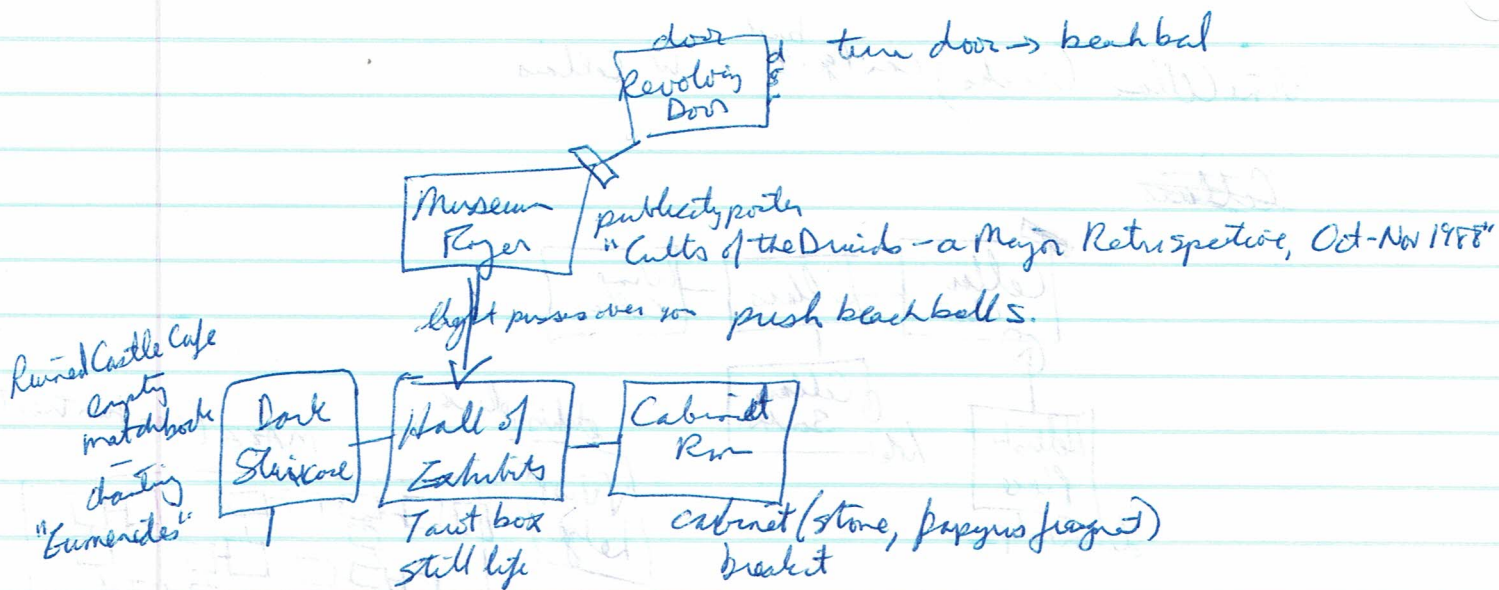 door
turn door → beachbal
Revolving
Door
Museum
Foyer
publicity poster
"Cults of the Druids - a Major Retrospective, Oct-Nov 1988"
light passes over you
push beachballs.
Ruined Castle Cafe
empty
matchbook
chanting
"Eumenides"
Dark
Staircase
Hall of
Exhibits
Tarot box
still life
Cabinet
Rm
cabinet (stone, papyrus fragment)
break it